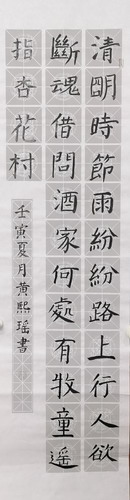 清明時節雨紛紛路上行人欲
斷魂借問酒家何處有牧童遥
指杏花村
壬寅夏月黄熙瑶書